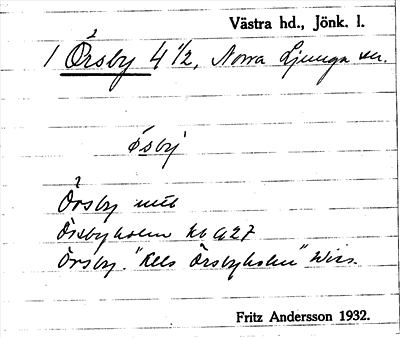 Västra hd., Jönk. l.
1 Örsby 4 1/2, Norra Ljunga sn.
ösby
Örsby mtb
Örsbyholm kb 927
Örsby. "Kells Örsbyholm" Wies.
Fritz Andersson 1932.